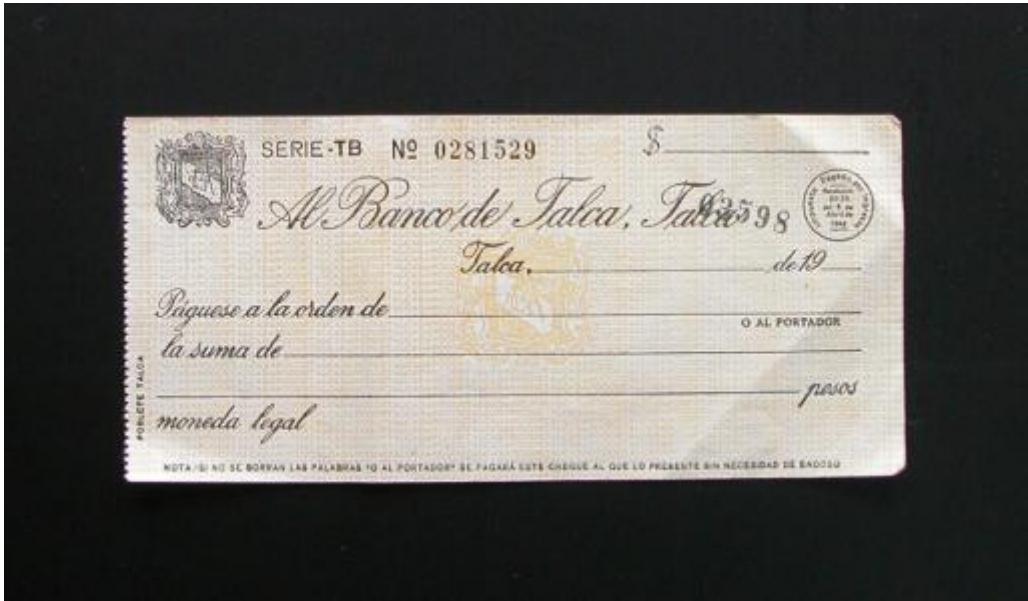 SERIE-TB Nº 0281529 $
Al Banco de Talca, Talca
98
Talca, de 19
Páguese a la orden de
O AL PORTADOR
la suma de
pesos
moneda legal
POBLETE TALCA
NOTA: SI NO SE BORRAN LAS PALABRAS "O AL PORTADOR" SE PAGARÁ ESTE CHEQUE AL QUE LO PRESENTE SIN NECESIDAD DE ENDOSO